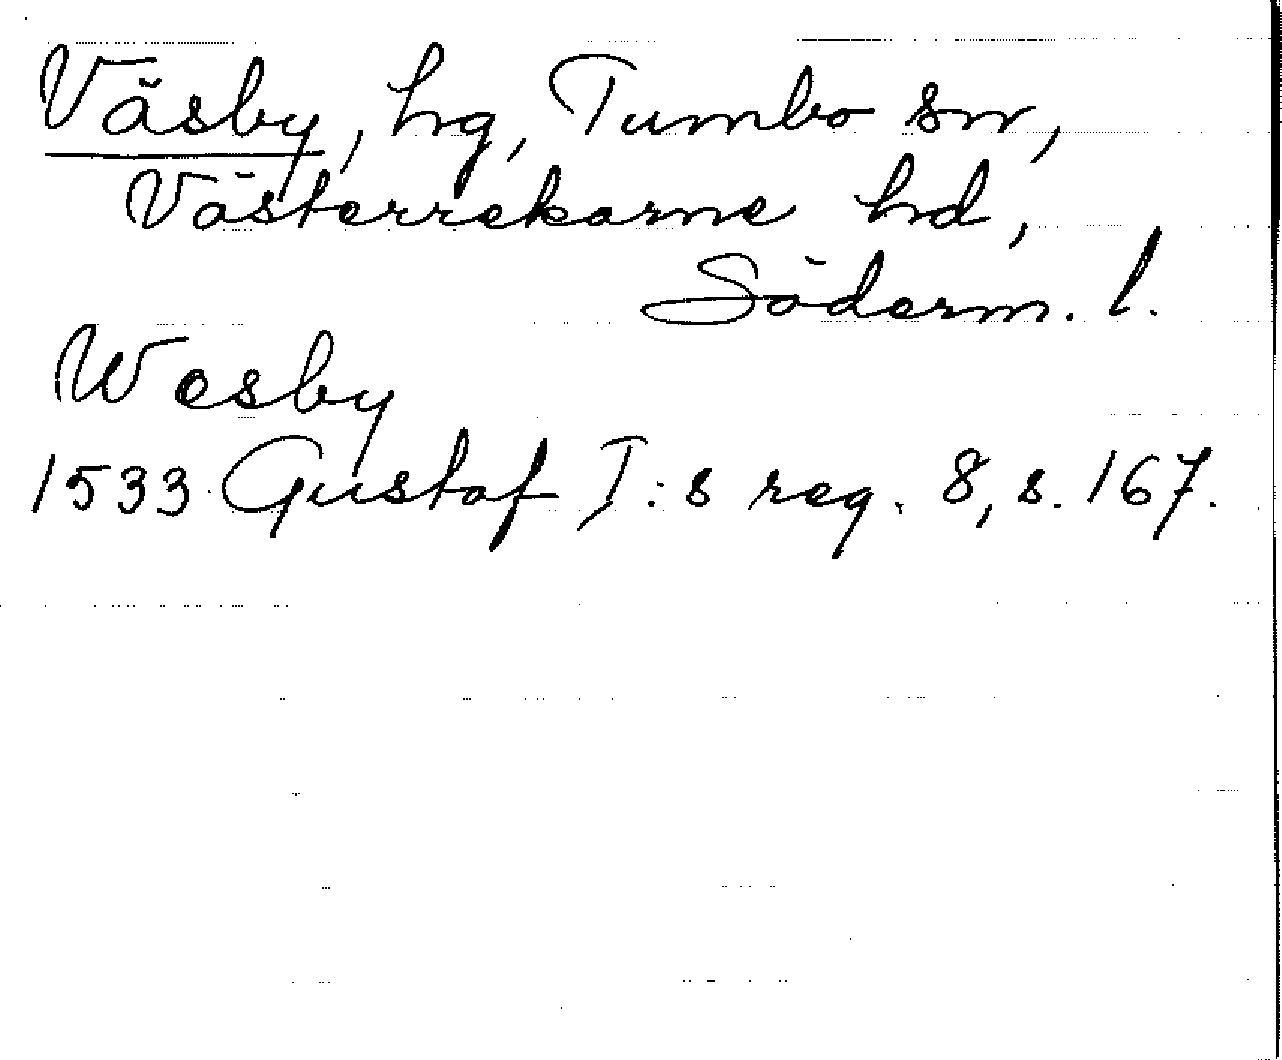 Väsby, hg, Tumbo sn,
Västerrekarne hd,
Söderm. l.
Wesby
1533 Gustaf I:s reg. 8, s. 167.